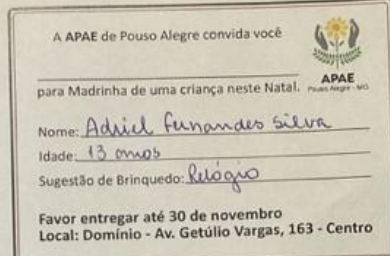 A APAE de Pouso Alegre convida você
para Madrinha de uma criança neste Natal.
APAE
Pouso Alegre - MG
Nome: Adriel Fernandes Silva
Idade: 13 anos
Sugestão de Brinquedo: Relógio
Favor entregar até 30 de novembro
Local: Domínio - Av. Getúlio Vargas, 163 - Centro